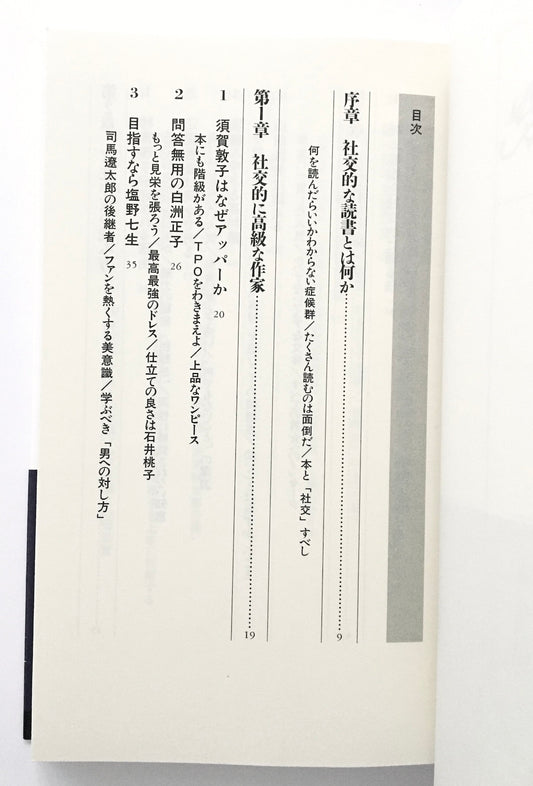 目次
序章　社交的な読書とは何か…………………………9
何を読んだらいいかわからない症候群／たくさん読むのは面倒だ／本と「社交」すべし
第Ⅰ章　社交的に高級な作家…………………………19
1　須賀敦子はなぜアッパーか　20
本にも階級がある／TPOをわきまえよ／上品なワンピース
2　問答無用の白洲正子　26
もっと見栄を張ろう／最高最強のドレス／仕立ての良さは石井桃子
3　目指すなら塩野七生　35
司馬遼太郎の後継者／ファンを熱くする美意識／学ぶべき「男への対し方」